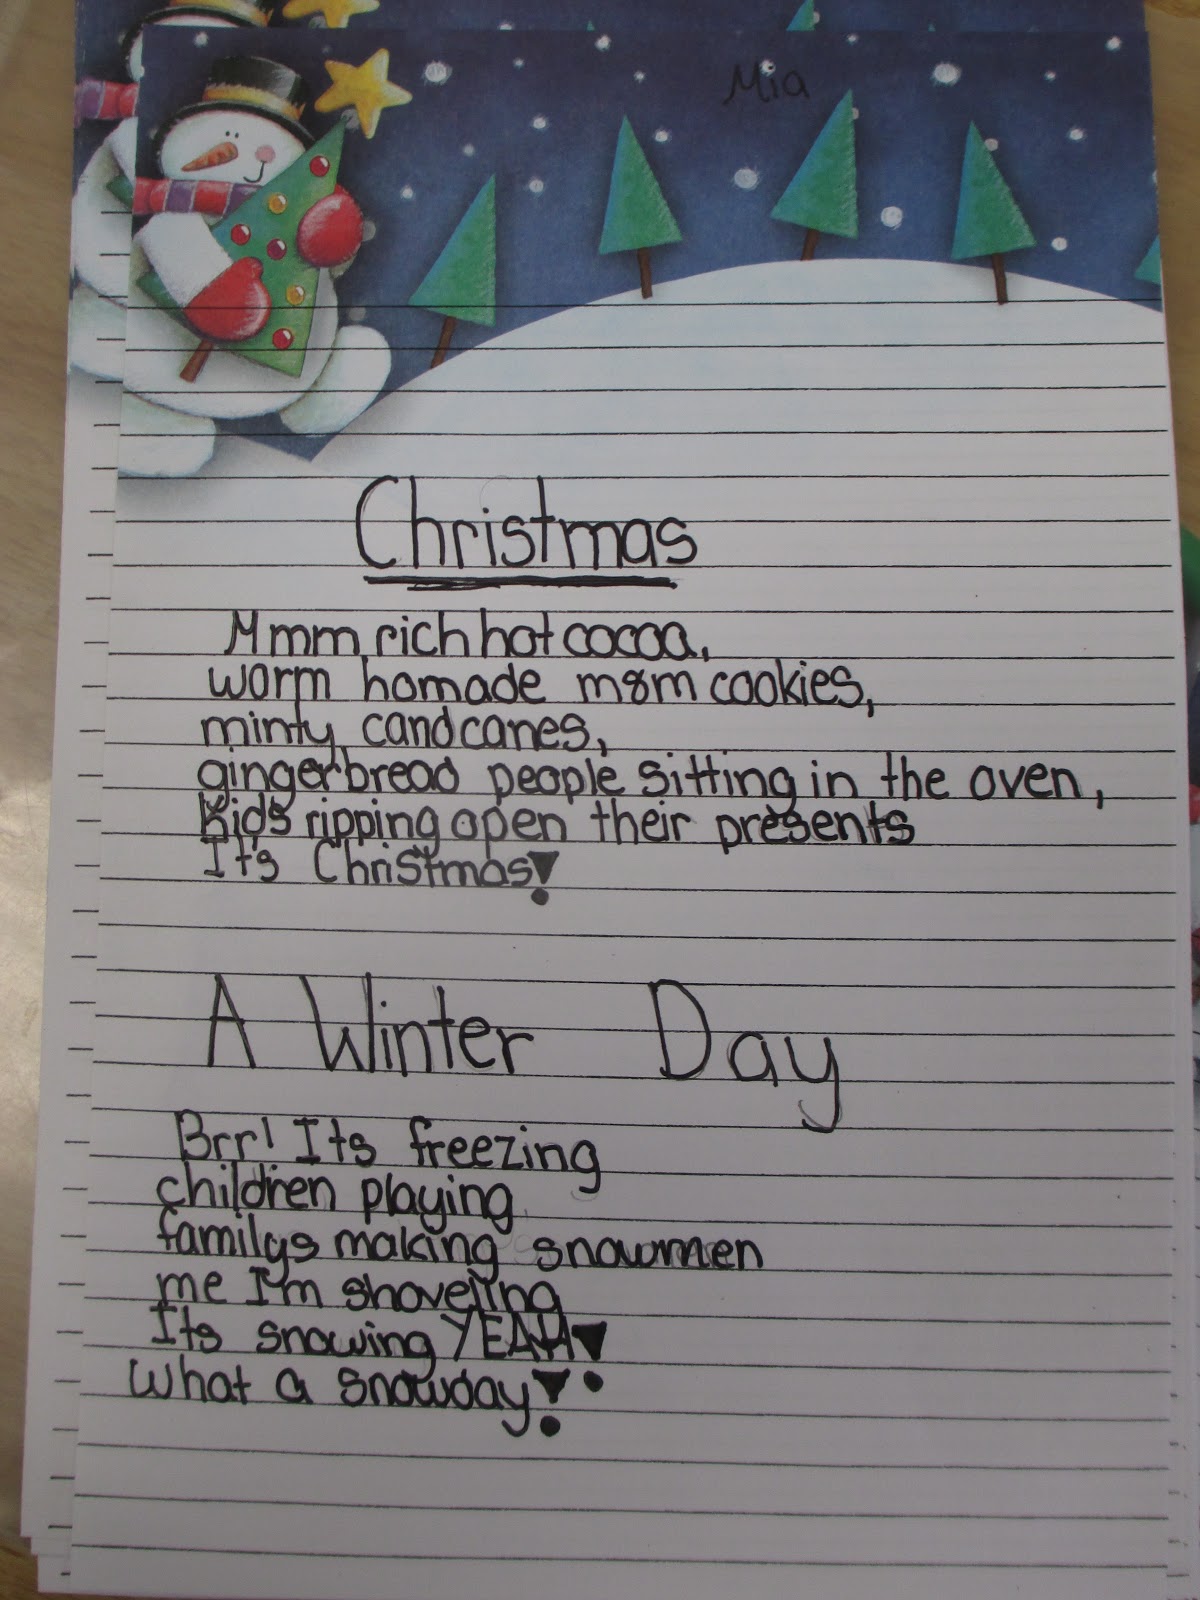 Mia
Christmas
Mmm rich hot cocoa,
warm homade m&m cookies,
minty candcanes,
gingerbread people sitting in the oven,
kids ripping open their presents
It's Christmas!
A Winter Day
Brr! Its freezing
children playing
familys making snowmen
me I'm shoveling
Its snowing YEAH!
What a snowday!